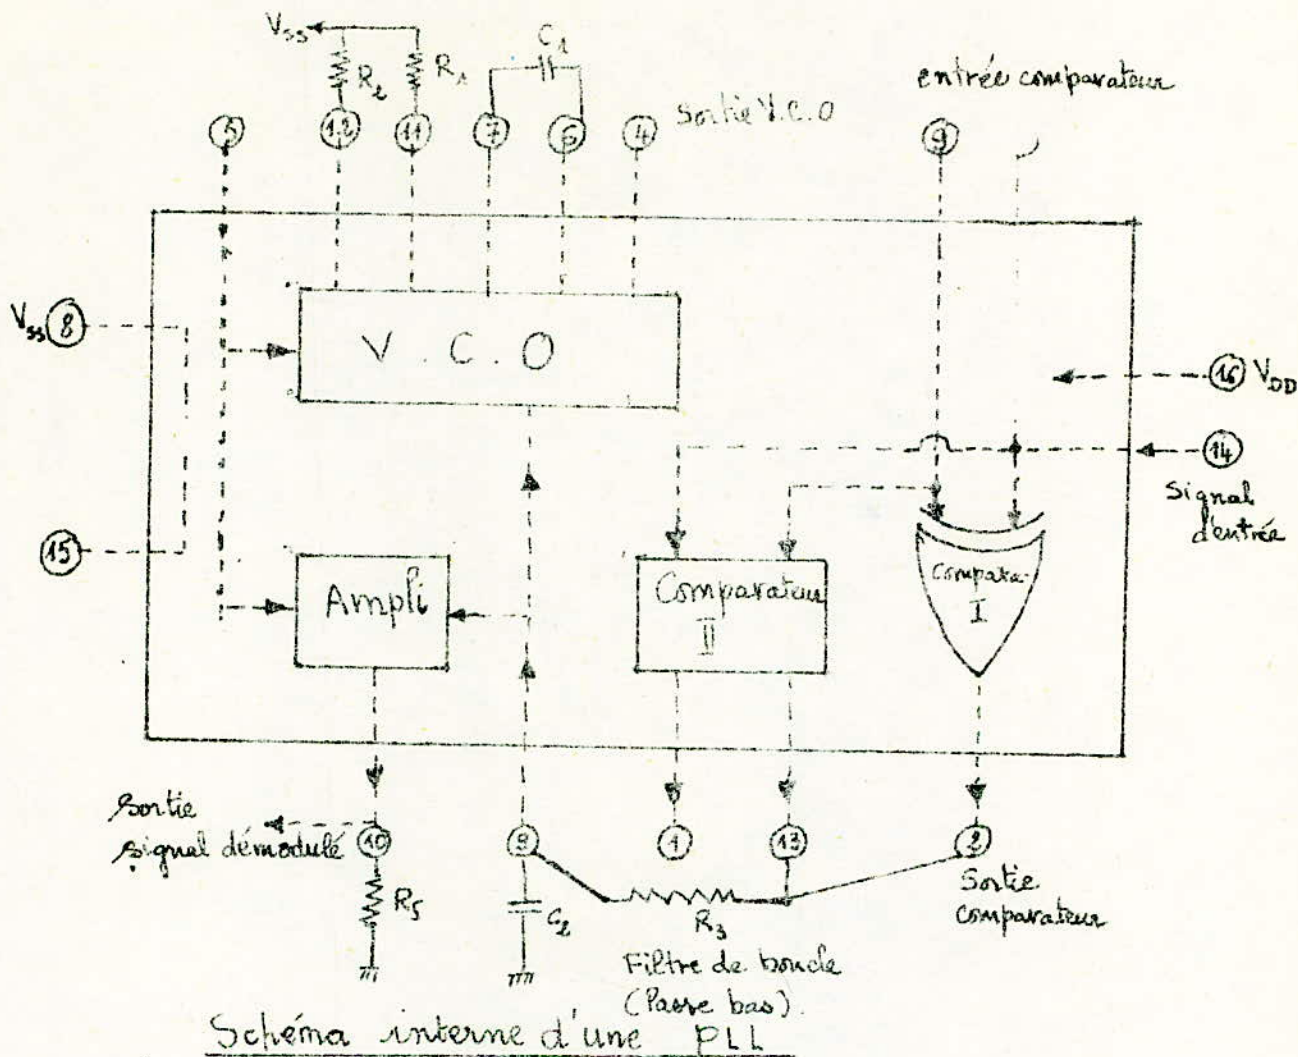 Vss
R2
R1
C1
entrée comparateur
5
12
11
7
6
4
Sortie V.C.O
9
Vss 8
V.C.O
16 VDD
14
Signal
d'entrée
15
Ampli
Comparateur
II
Compara-
I
Sortie
signal démodulé
10
9
1
13
2
Sortie
comparateur
R5
C2
R3
Filtre de boucle
(Passe bas).
Schéma interne d'une PLL